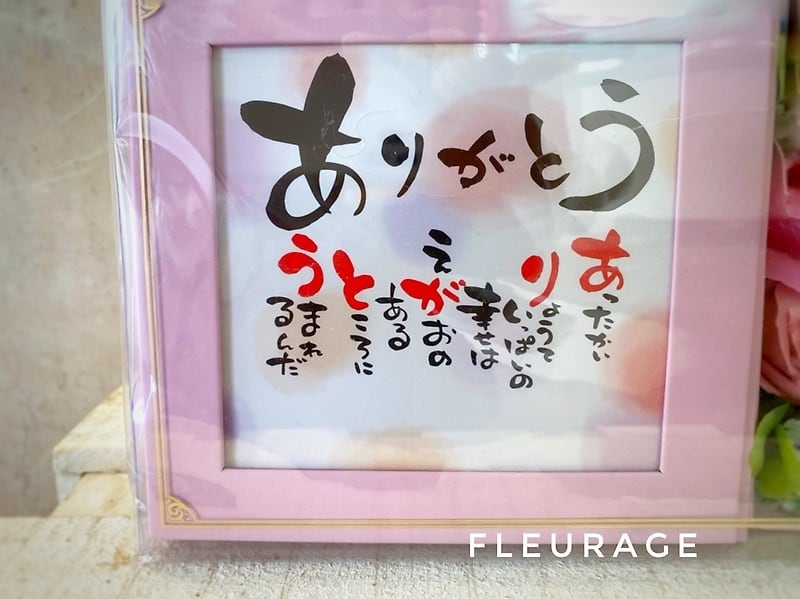 ありがとう
あったかい
りょうて
いっぱいの
幸せは
えがおの
ある
ところに
うまれ
るんだ
FLEURAGE